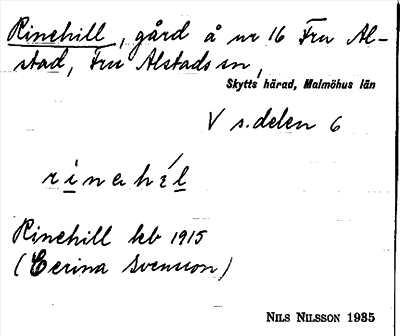 Rinehill, gård å nr 16 Fru Al-
stad, Fru Alstads sn,
Skytts härad, Malmöhus län
V s. delen 6
rinehil
Rinehill kb 1915
(Cerina Svensson)
NILS NILSSON 1935